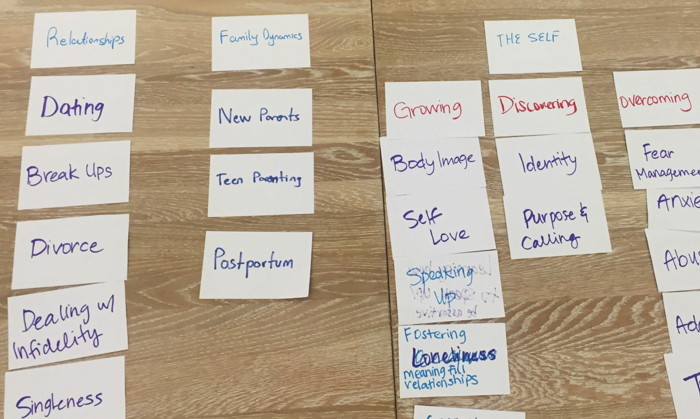 Relationships
Dating
Break Ups
Divorce
Dealing w/
Infidelity
Singleness
Family Dynamics
New Parents
Teen Parenting
Postpartum
THE SELF
Growing
Body Image
Self
Love
Speaking
Up
Fostering
Loneliness
meaningfull
relationships
Discovering
Identity
Purpose &
Calling
Overcoming
Fear
Managemen
Anxie
Abu